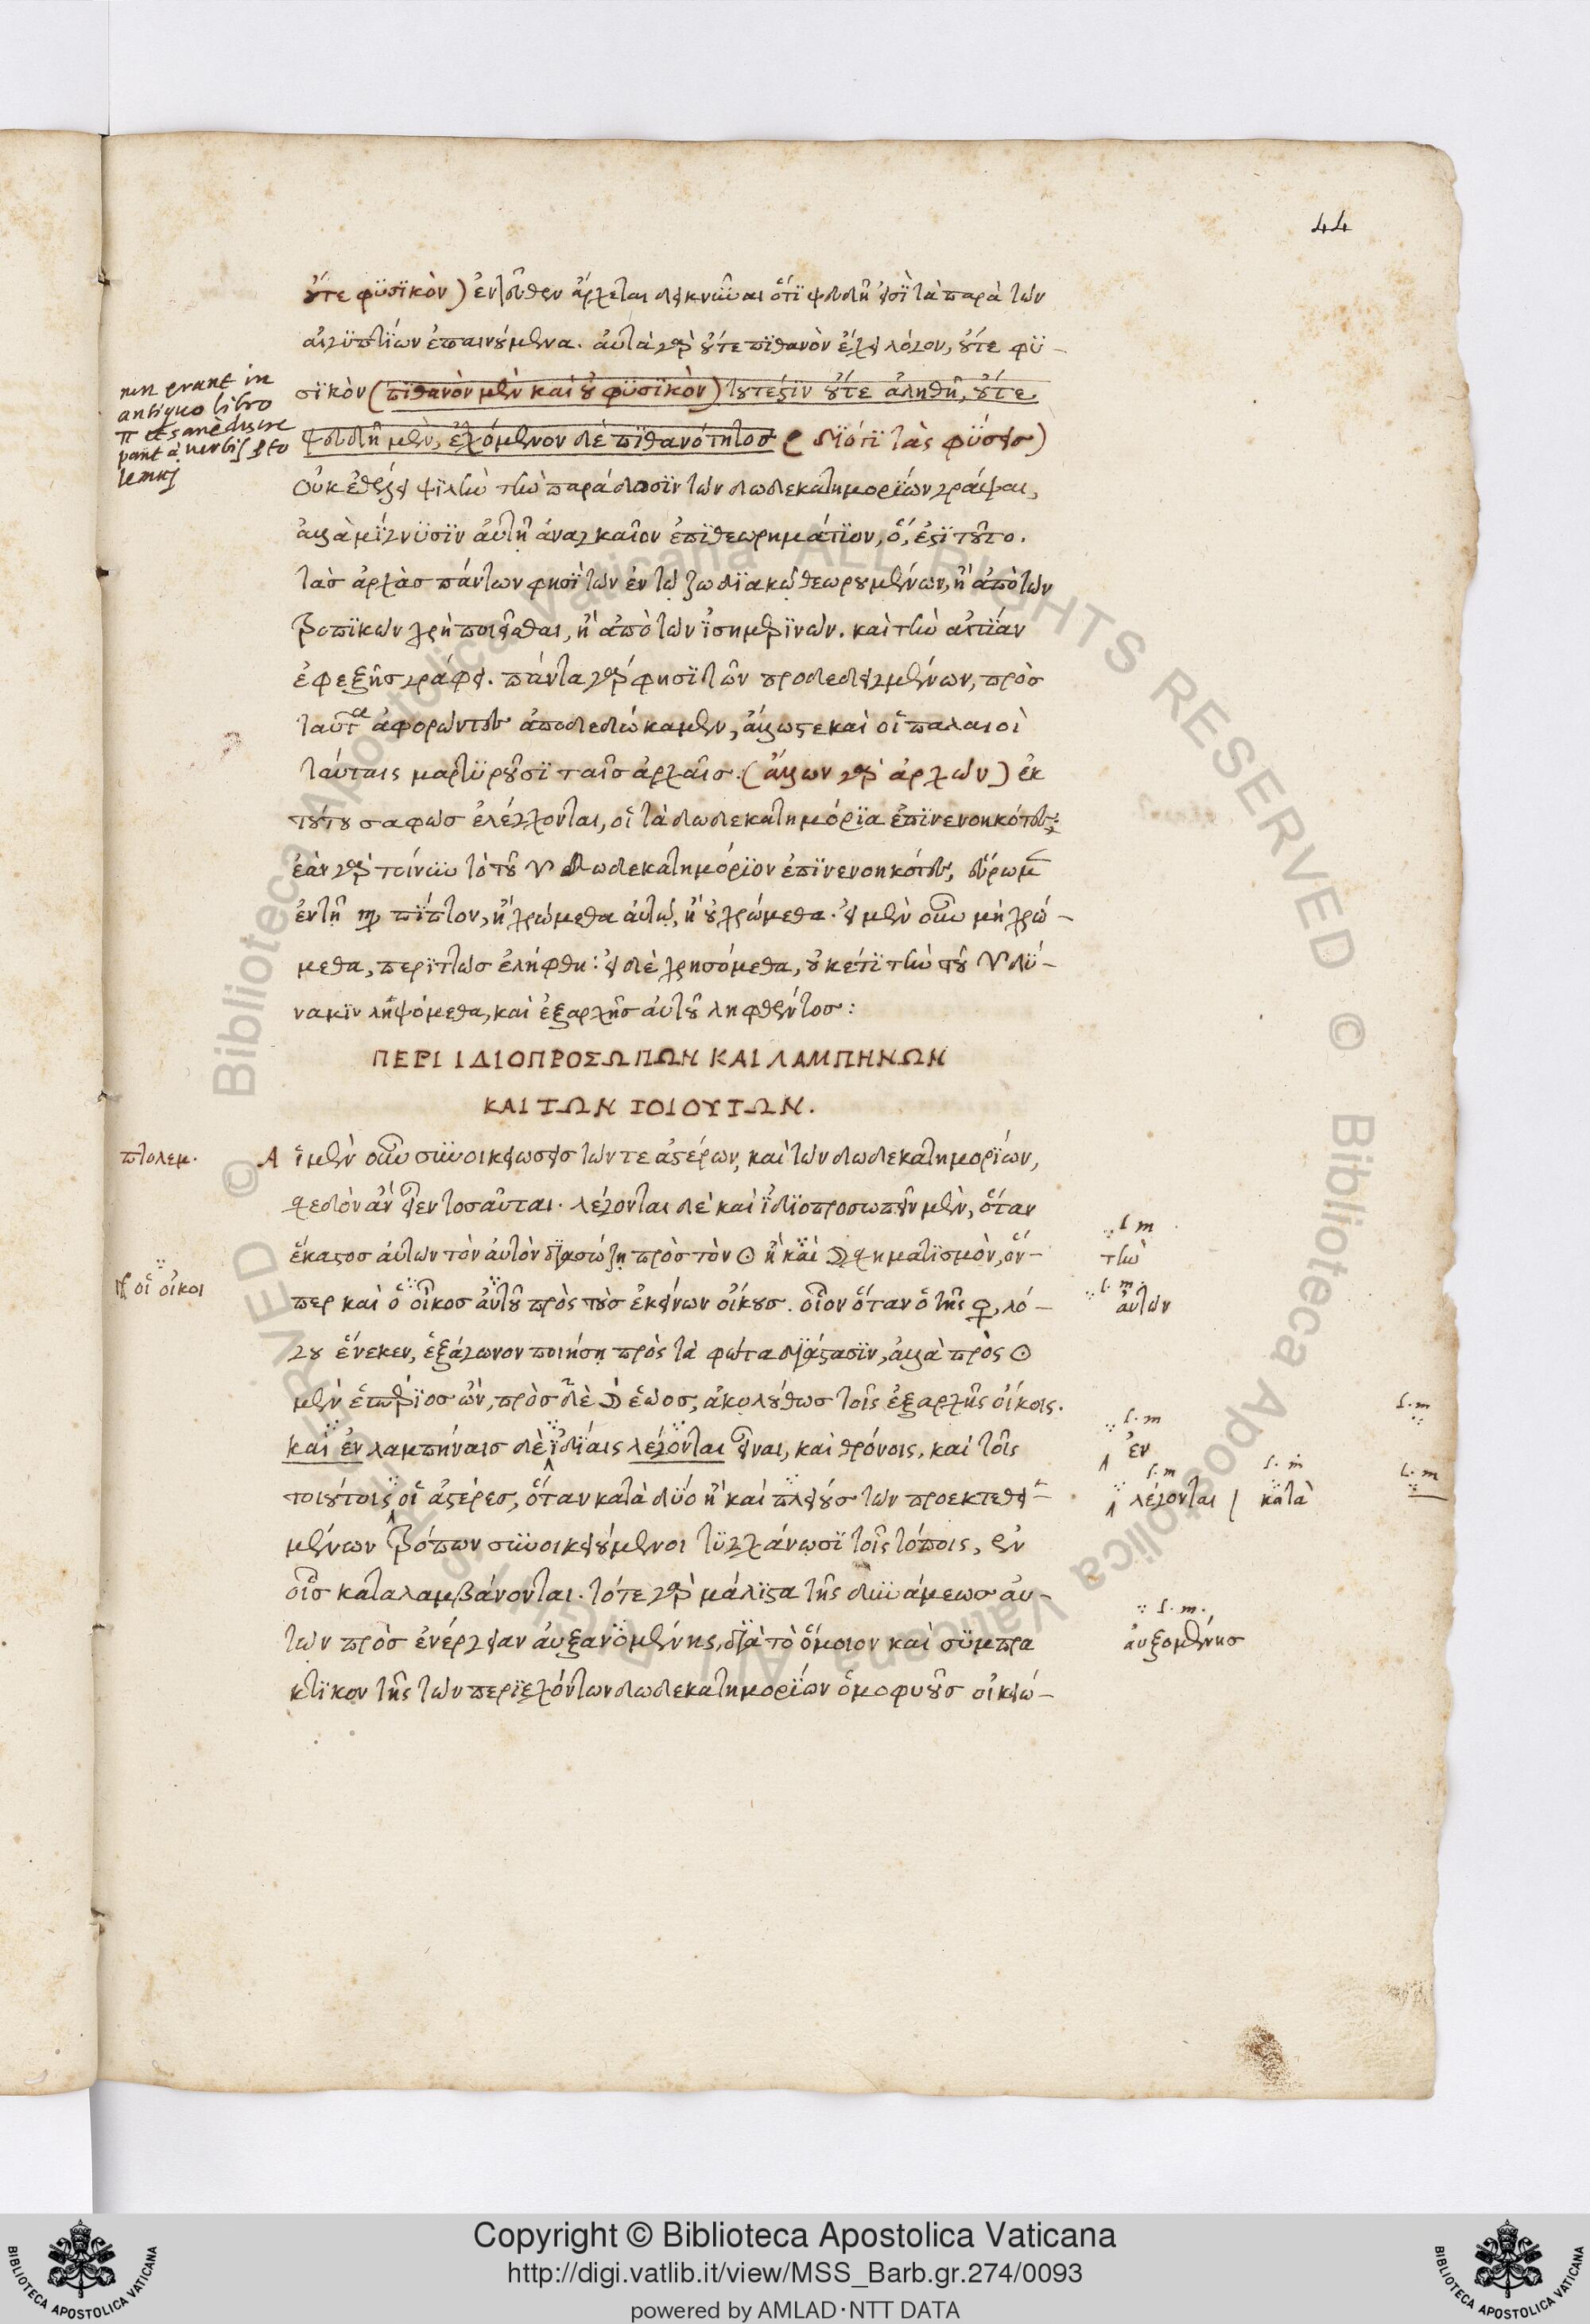 44
οὔτε φϋσϊκὸν) ἐντεῦθεν ἄρχεται δεικνύναι ὅτϊ ψευδῆ εἰσῒ τὰ παρὰ τῶν
αἰγϋπτΐων ἐπαινούμενα. αὐτὰ γὰρ οὔτε πϊθανὸν ἔχει λόγον, οὔτε φϋ-
σϊκὸν (πϊθανὸν μὲν καὶ οὐ φϋσϊκὸν) τουτέστϊν οὔτε ἀληθῆ, οὔτε
ψευδῆ μὲν, ἐχόμενον δὲ πϊθανότητος ( δϊότϊ τὰς φΰσεις)
non erant in
antiquo libro
π et sanè discre
pant à verbis pto
lemaij
οὐκ ἐθέλει ψϊλὴν τὴν παράδοσϊν τῶν δωδεκατημορϊων γράψαι,
ἀλλὰ μΐγνϋσϊν αὐτῇ ἀναγκαῖον ἐπϊθεωρημάτϊον, ὅ, ἐστϊ τοῦτο.
τὰς ἀρχὰς πάντων φησῒ τῶν ἐν τῷ ζωδϊακῷ θεωρουμένων, ἢ ἀπὸ τῶν
τροπϊκῶν χρὴ ποιεῖσθαι, ἢ ἀπὸ τῶν ἰσημερϊνῶν. καὶ τὴν αἰτΐαν
ἐφεξῆς γράφει. πάντα γὰρ φησῒ τῶν προδεδειγμένων, πρὸς
ταῦτα ἀφορῶντες ἀποδεδώκαμεν, ἄλλως τε καὶ οἱ παλαιοὶ
ταύταις μαρτϋροῦσϊ ταῖς ἀρχαῖς. (ἄλλων γὰρ ἀρχῶν) ἐκ
τούτου σαφῶς ἐλέγχονται, οἱ τὰ δωδεκατημόρϊα ἐπϊνενοηκότες:
ἐὰν γὰρ τοίνυν τὸ τοῦ ♈ δωδεκατημόρϊον ἐπϊνενοηκότες, εὕρωμεν
ἐν τῇ ♍ πΐπτον, ἢ χρώμεθα αὐτῷ, ἢ οὐ χρώμεθα. εἰ μὲν οὖν μὴ χρώ-
μεθα, περϊττῶς ἐλήφθη: εἰ δὲ χρησόμεθα, οὐκέτϊ τὴν τοῦ ♈ δΰ-
ναμϊν ληψόμεθα, καὶ ἐξαρχῆς αὐτοῦ ληφθέντος:
ΠΕΡΙ ΙΔΙΟΠΡΟΣΩΠΩΝ ΚΑΙ ΛΑΜΠΗΝΩΝ
ΚΑΙ ΤΩΝ ΤΟΙΟΥΤΩΝ.
πτολεμ.
Αἱ μὲν οὖν συνοικειώσεις τῶν τε ἀστέρων, καὶ τῶν δωδεκατημορΐων,
σχεδὸν ἂν εἶεν τοσαῦται. λέγονται δὲ καὶ ἰδϊοπροσωπεῖν μὲν, ὅταν
ἕκαστος αὐτῶν τὸν αὐτὸν δϊασώζῃ πρὸς τὸν ☉ ἢ καὶ ☽ σχηματϊσμὸν, ὅν-
s. m
τὴν
οἱ οἶκοι
περ καὶ ὁ οἶκος αὐτοῦ πρὸς τοὺς ἐκείνων οἴκους. οἷον ὅταν ὁ τῆς ♀, λό-
s. m.
αὐτῶν
γου ἕνεκεν, ἑξάγωνον ποιήσῃ πρὸς τὰ φῶτα δϊάστασϊν, ἀλλὰ πρὸς ☉
μὲν ἑσπέρϊος ὢν, πρὸς δὲ ☽ ἑῷος, ἀκολούθως τοῖς ἐξαρχῆς οἴκοις.
s. m
καὶ ἐν λαμπήναις δὲ ἰδΐαις λέγονται εἶναι, καὶ θρόνοις, καὶ τοῖς
s. m
ἐν
τοιούτοις οἱ ἀστέρες, ὅταν κατὰ δΰο ἢ καὶ πλείους τῶν προεκτεθει-
s. m
λέγονται
s. m
κατὰ
s. m
μένων τρόπων συνοικειούμενοι τϋγχάνωσϊ τοῖς τόποις, ἐν
οἷς καταλαμβάνονται. τότε γὰρ μάλϊστα τῆς δυνάμεως αὐ-
τῶν πρὸς ἐνέργειαν αὐξανομένης, δϊὰ τὸ ὅμοιον καὶ σϋμπρα
s. m.
αὐξομένης
κτϊκον τῆς τῶν περϊεχόντων δωδεκατημορΐων ὁμοφυοῦς οἰκειώ-
Copyright © Biblioteca Apostolica Vaticana
http://digi.vatlib.it/view/MSS_Barb.gr.274/0093
powered by AMLAD·NTT DATA
BIBLIOTECA APOSTOLICA VATICANA
BIBLIOTECA APOSTOLICA VATICANA
© Biblioteca Apostolica Vaticana ALL RIGHTS RESERVED © Biblioteca Apostolica Vaticana ALL RIGHTS RESERVED